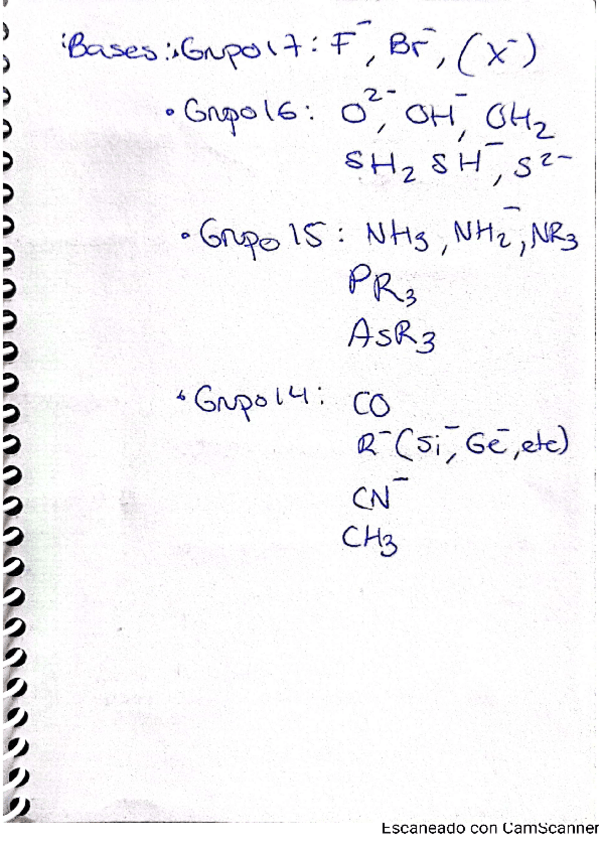 Bases: Grupo 17: F⁻, Br⁻, (X⁻)
• Grupo 16: O²⁻, OH⁻, OH₂
SH₂ SH⁻, S²⁻
• Grupo 15: NH₃, NH₂⁻, NR₃
PR₃
AsR₃
• Grupo 14: CO
R⁻ (Si⁻, Ge⁻, etc)
CN⁻
CH₃
Escaneado con CamScanner